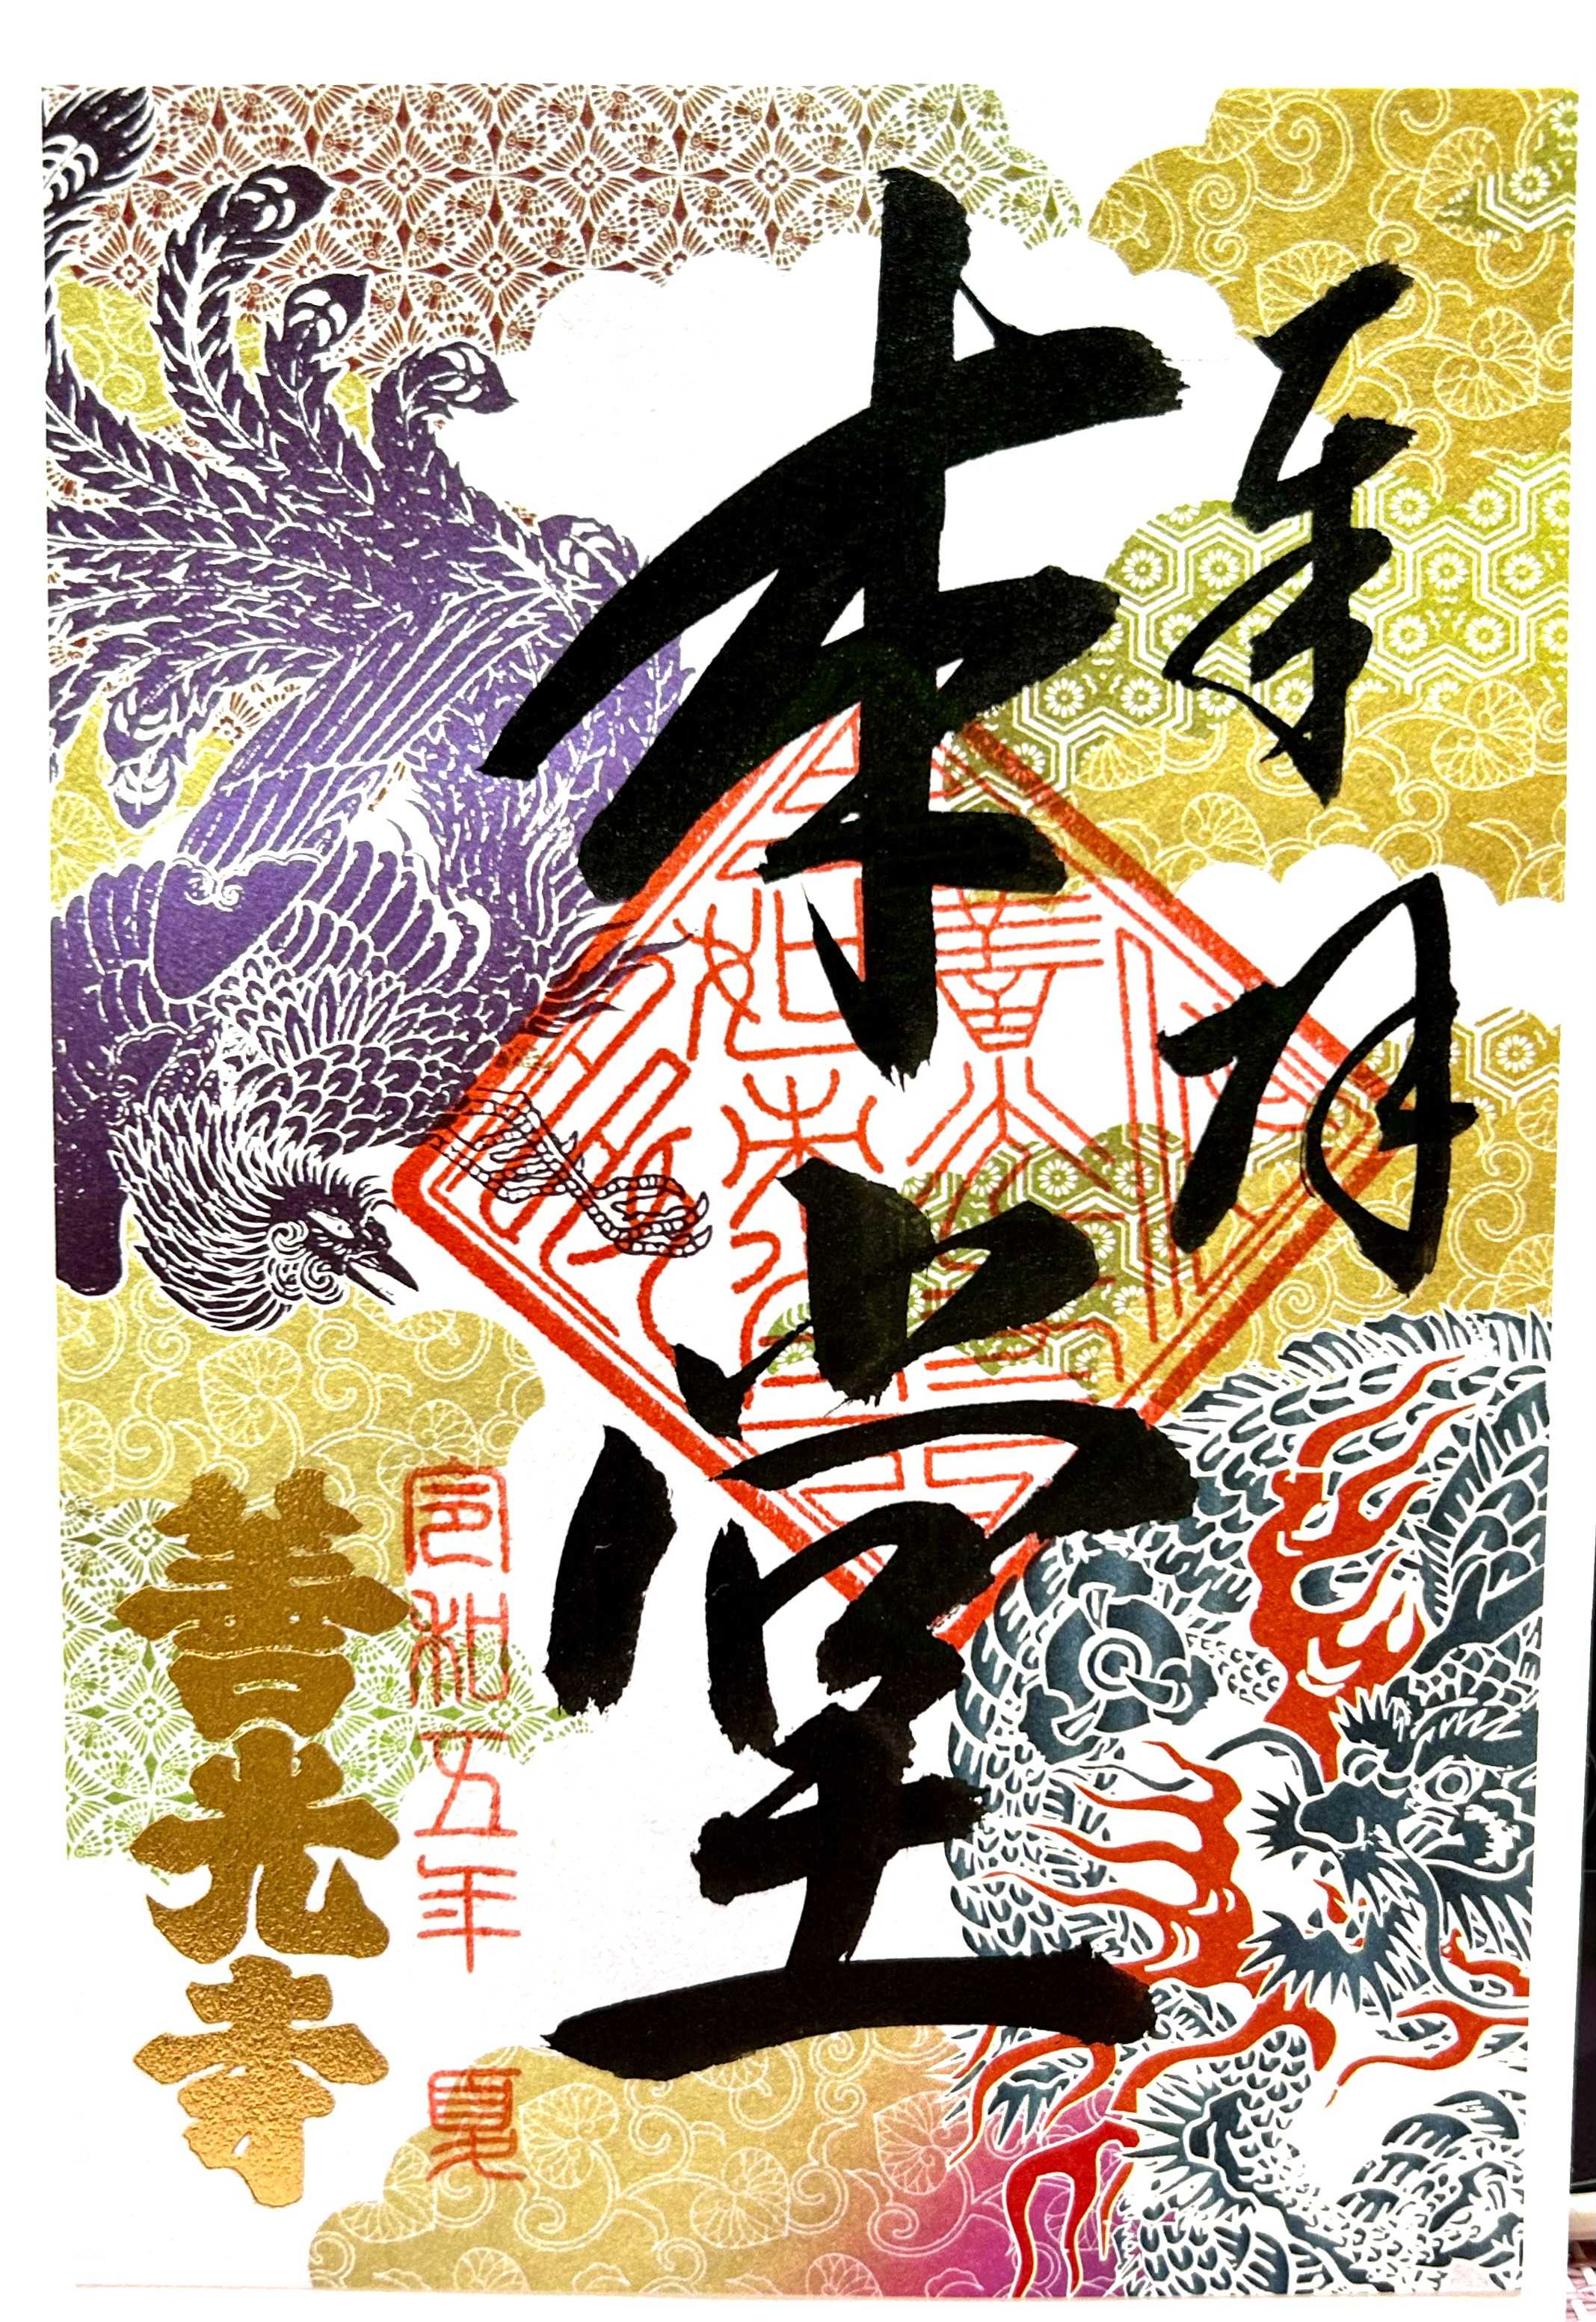 奉拝
本堂
令和五年 夏
善光寺